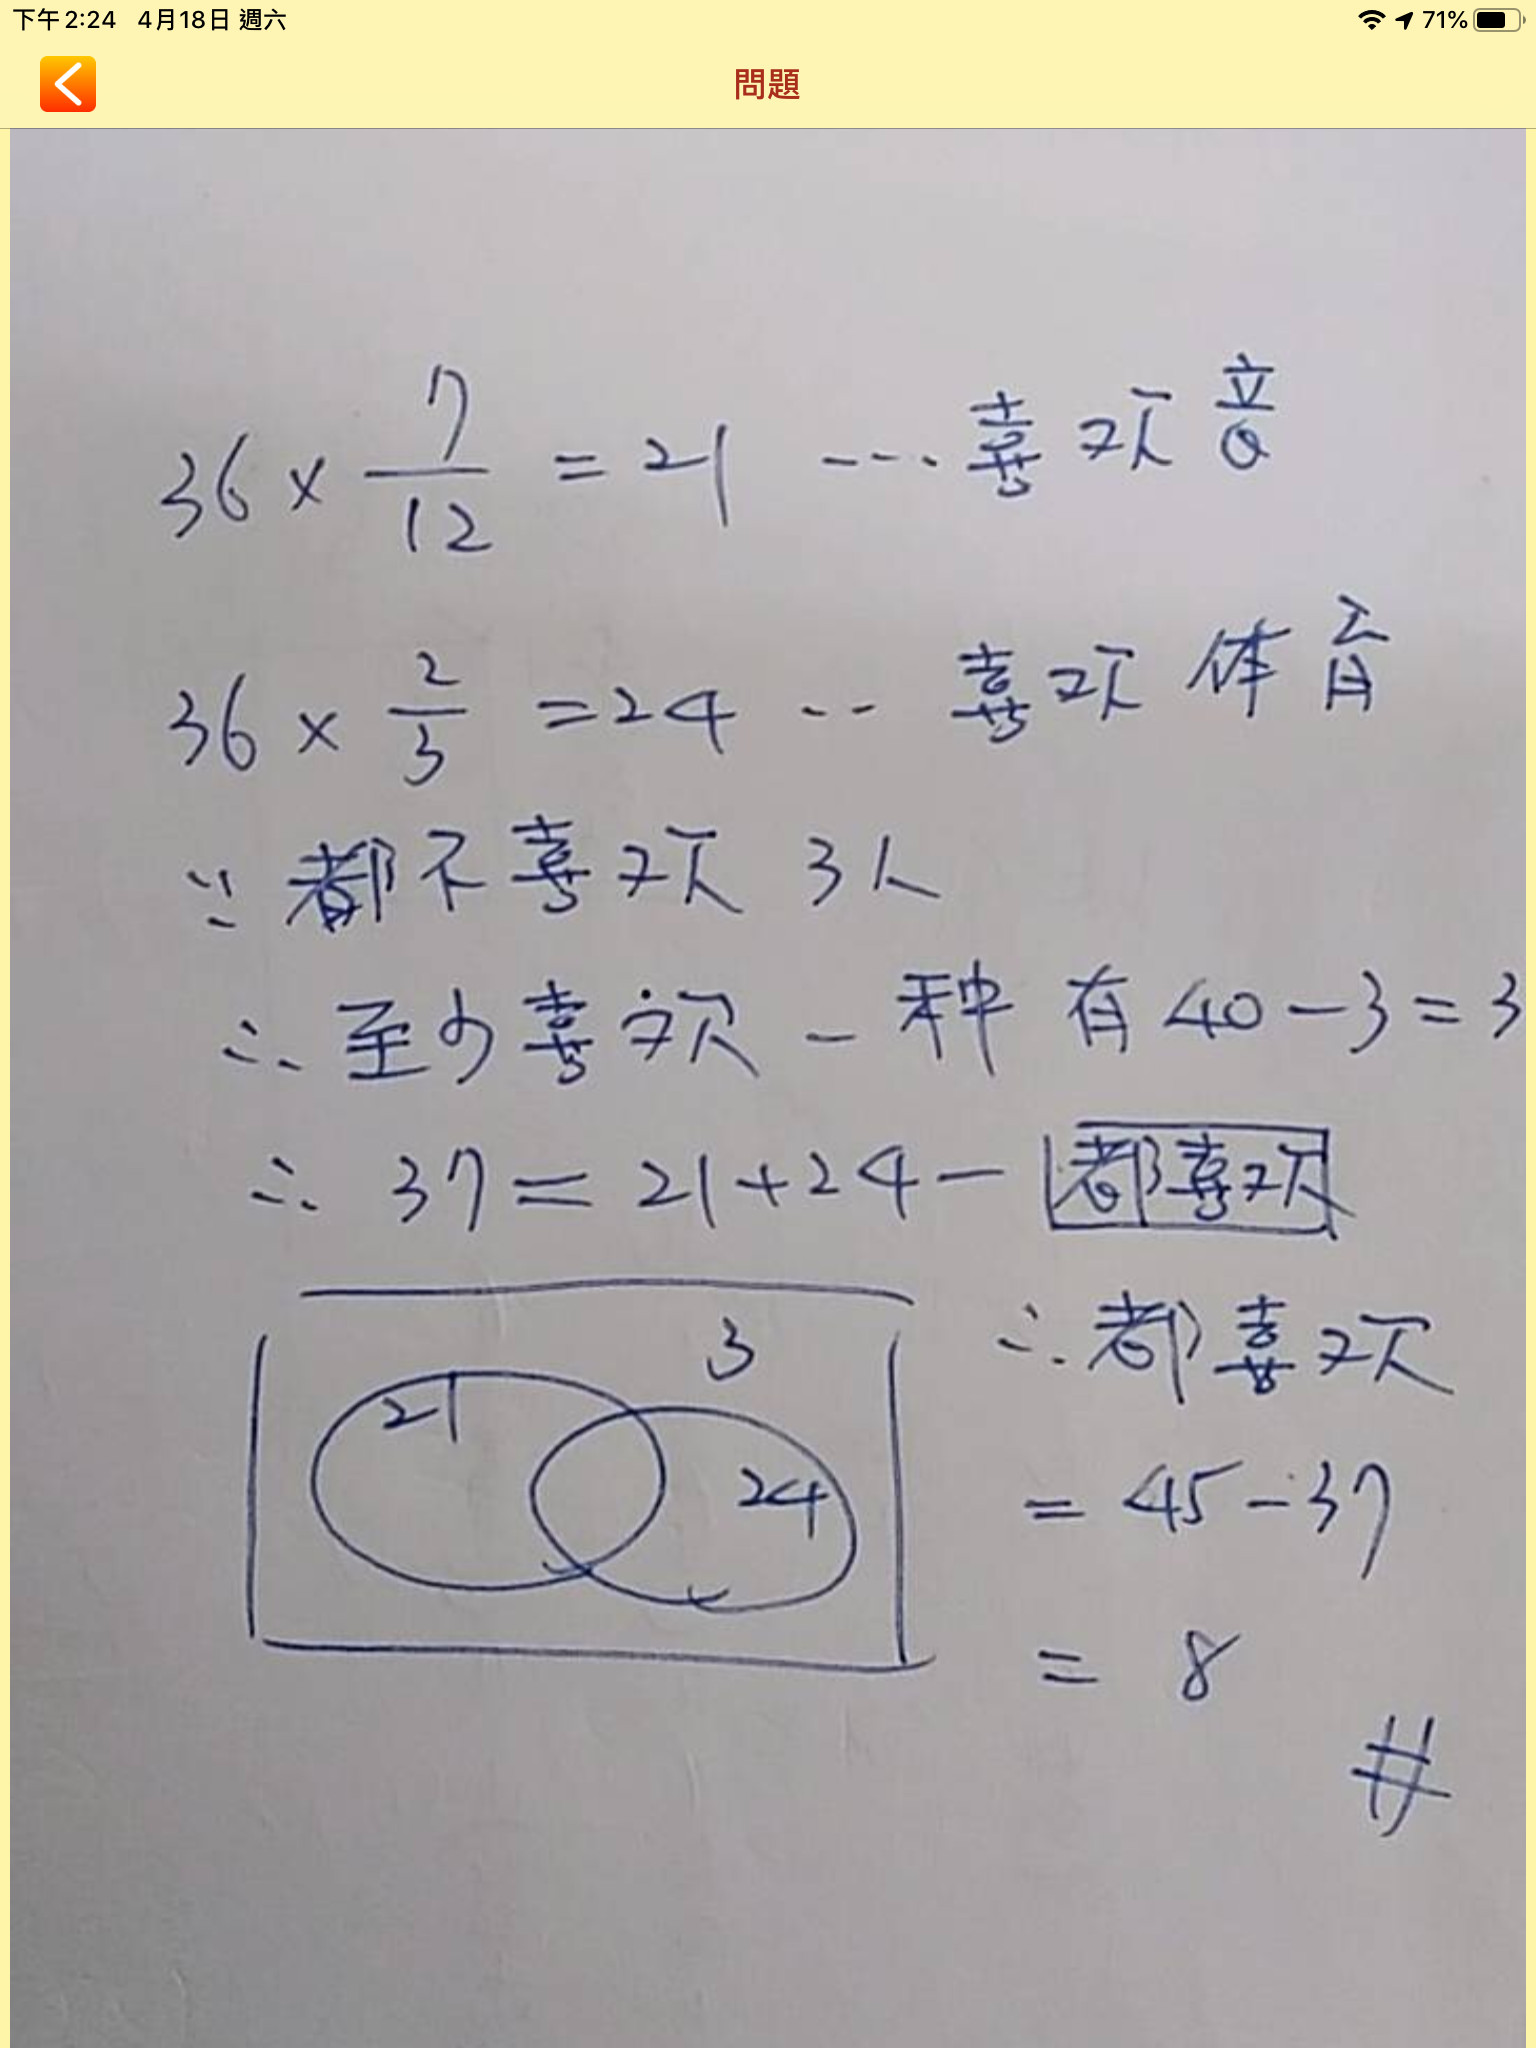 下午2:24 4月18日 週六
71%
問題
36 × 7/12 = 21 ---- 喜欢音
36 × 2/3 = 24 -- 喜欢体育
∵ 都不喜欢 3人
∴ 至少喜欢一种有 40 - 3 = 3
∴ 37 = 21 + 24 - 都喜欢
3
21
24
∴ 都喜欢
= 45 - 37
= 8
#